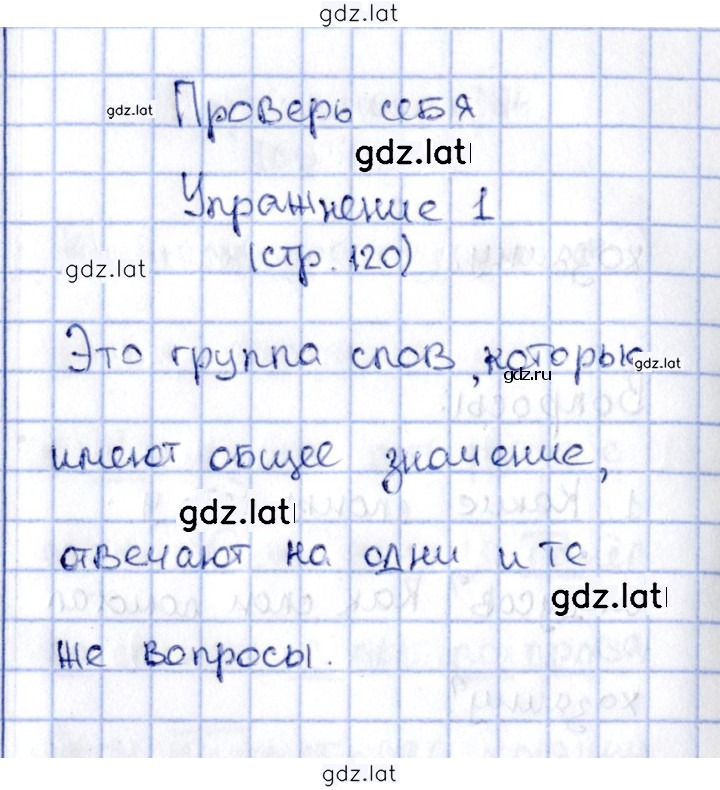 gdz.lat
Проверь себя
gdz.lat
gdz.lat
Упражнение 1
(стр. 120)
gdz.lat
Это группа слов, которые
gdz.lat
gdz.ru
имеют общее значение,
gdz.lat
отвечают на одни и те
gdz.lat
же вопросы.
gdz.lat